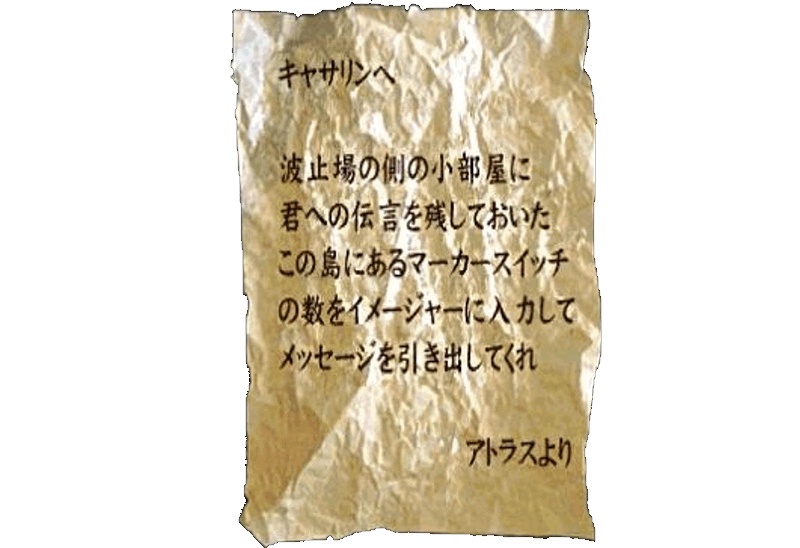 キャサリンへ
波止場の側の小部屋に
君への伝言を残しておいた
この島にあるマーカースイッチ
の数をイメージャーに入力して
メッセージを引き出してくれ
アトラスより